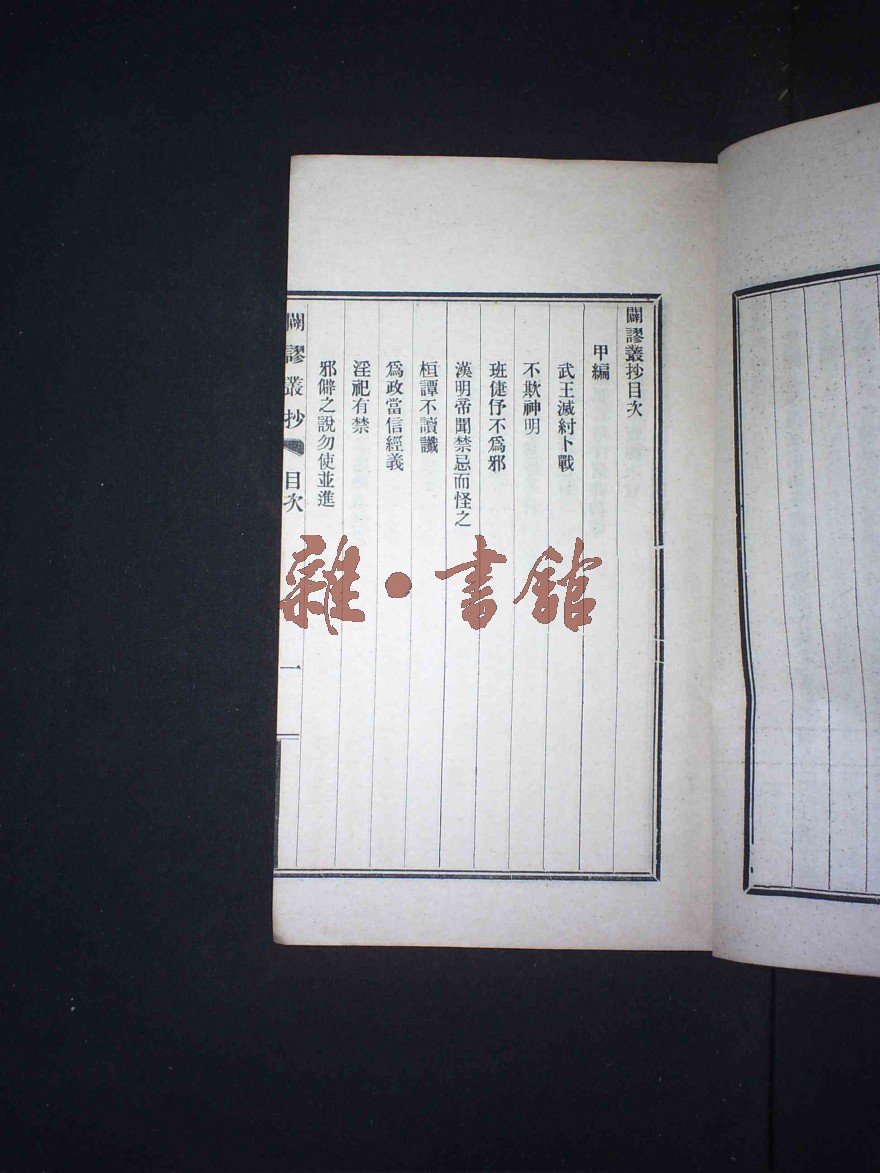 闢謬叢抄目次
甲編
武王滅紂卜戰
不欺神明
班倢伃不爲邪
漢明帝聞禁忌而怪之
桓譚不讀讖
爲政當信經義
淫祀有禁
邪僻之說勿使並進
闢謬叢抄 目次 一
雜·書館